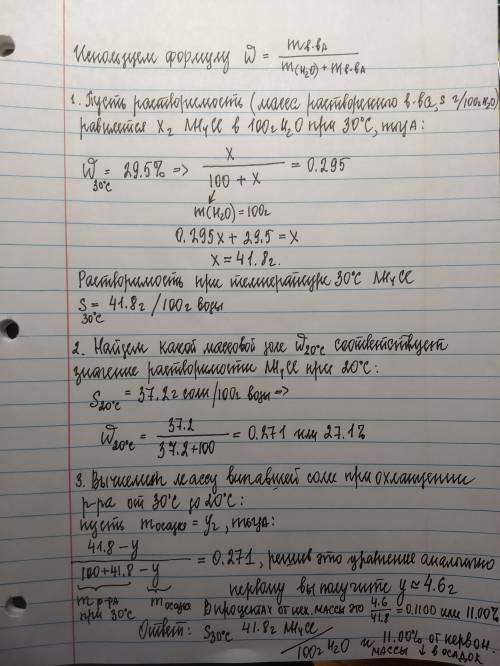 Используем формулу W = m в-ва / m(H₂O) + m в-ва
1. Пусть растворимость (масса растворенного в-ва, S г/100г H₂O)
равняется X г NH₄Cl в 100г H₂O при 30°C, тогда:
W 30°C = 29.5% => x / 100 + x = 0.295
m(H₂O) = 100г
0.295x + 29.5 = x
x = 41.8г.
Растворимость при температуре 30°C NH₄Cl
S 30°C = 41.8г / 100г воды
2. Найдем какой массовой доле W 20°C соответствует
значение растворимости NH₄Cl при 20°C:
S 20°C = 37.2г соли/100г воды =>
W 20°C = 37.2 / 37.2+100 = 0.271 или 27.1%
3. Вычислим массу выпавшей соли при охлаждении
р-ра от 30°C до 20°C:
пусть m осадка = y г, тогда:
41.8 - y / 100+41.8 - y = 0.271, решив это уравнение аналогично
первому вы получите y ≈ 4.6г
m р-ра при 30°C m осадка В процентах от исх. массы это 4.6/41.8 = 0.1100 или 11.00%
Ответ: S 30°C 41.8г NH₄Cl / 100г H₂O и 11.00% от первон.
массы ↓ в осадок